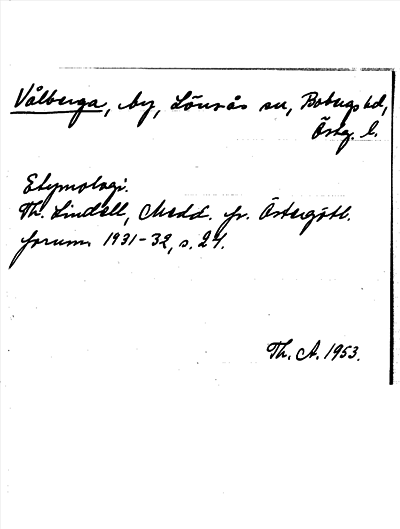 Vålberga, by, Lönsås sn, Bobergs hd,
Östg. l.
Etymologi.
Th. Lindell, Medd. fr. Östergötl.
fornm 1931-32, s. 24.
Th. A. 1953.